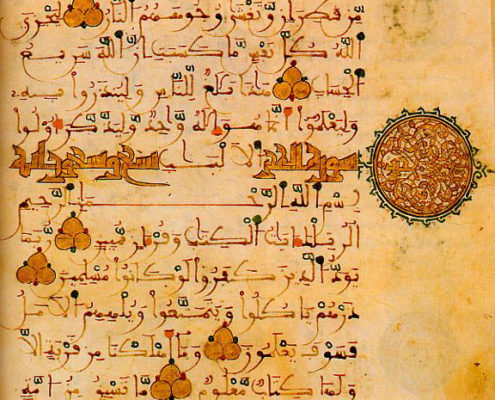 من قطران وتغشى وجوههم النار ليجزي
الله كل نفس ما كسبت إن الله سريع
الحساب هذا بلغ للناس ولينذروا به
وليعلموا أنما هو إله وحد وليذكر أولوا
سورة الحجر الألبب تسع وتسعون آية
بسم الله الرحمن الرحيم
الر تلك ءايت الكتب وقرءان مبين ربما
يود الذين كفروا لو كانوا مسلمين
ذرهم يأكلوا ويتمتعوا ويلههم الأمل
فسوف يعلمون وما أهلكنا من قرية إلا
ولها كتاب معلوم ما تسبق من أمة